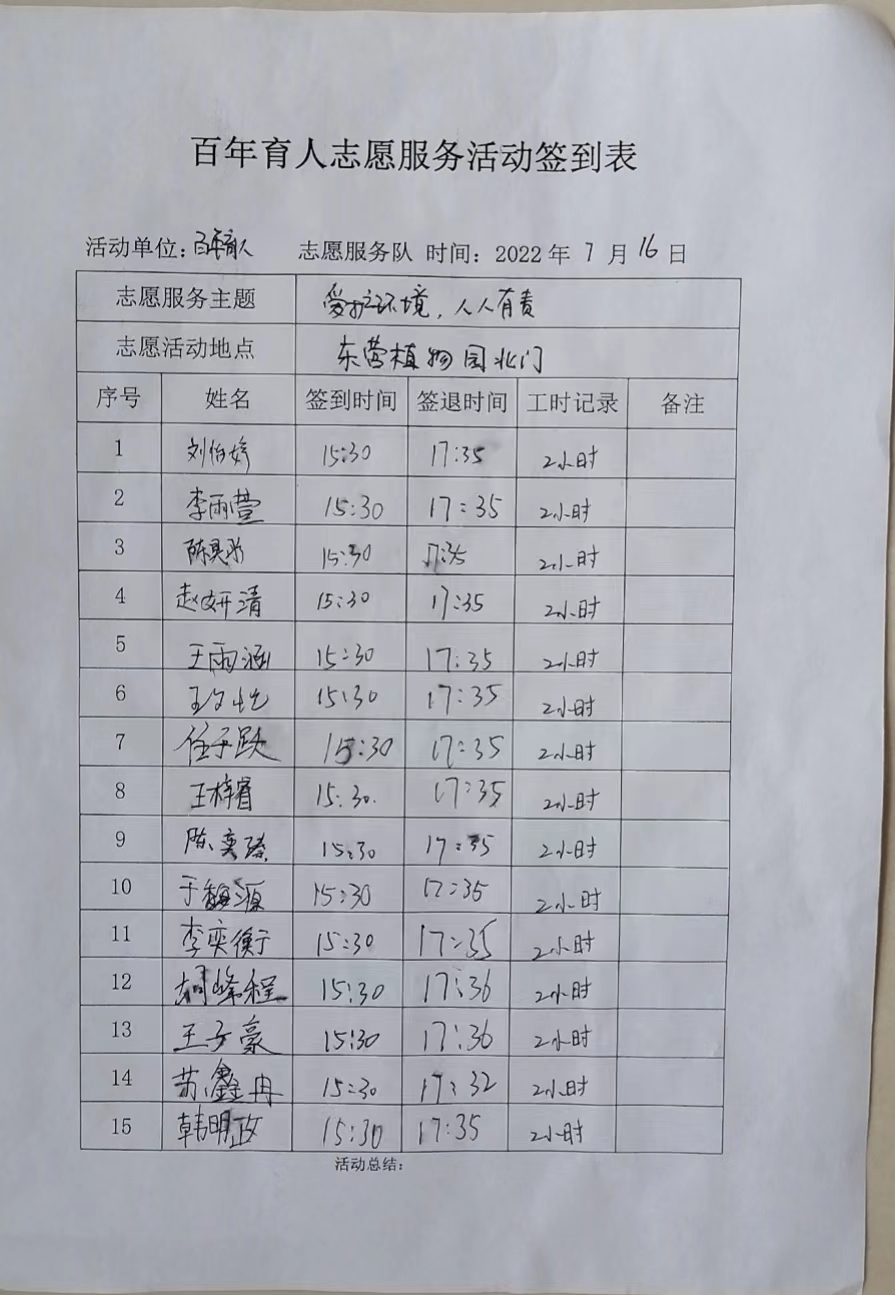 百年育人志愿服务活动签到表
活动单位:百年育人 志愿服务队 时间: 2022年 7 月 16 日
志愿服务主题 爱护环境,人人有责
志愿活动地点 东营植物园北门
序号 姓名 签到时间 签退时间 工时记录 备注
1 刘怡婷 15:30 17:35 2小时
2 李雨萱 15:30 17:35 2小时
3 15:30 17:35 2小时
4 赵妍清 15:30 17:35 2小时
5 王雨涵 15:30 17:35 2小时
6 15:30 17:35 2小时
7 任子跃 15:30 17:35 2小时
8 王梓睿 15:30. 17:35 2小时
9 陈奕 15:30 17:35 2小时
10 于 源 15:30 17:35 2小时
11 李奕衡 15:30 17:35 2小时
12 胡峰程 15:30 17:36 2小时
13 王子豪 15:30 17:36 2小时
14 苏鑫冉 15:30 17:32 2小时
15 韩明政 15:30 17:35 2小时
活动总结: